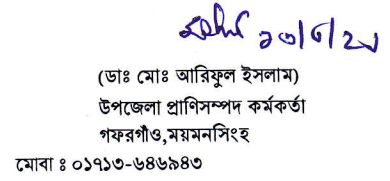 (ডাঃ মোঃ আরিফুল ইসলাম)
উপজেলা প্রাণিসম্পদ কর্মকর্তা
গফরগাঁও,ময়মনসিংহ
মোবা ঃ ০১৭১৩-৬৪৬৯৪৩